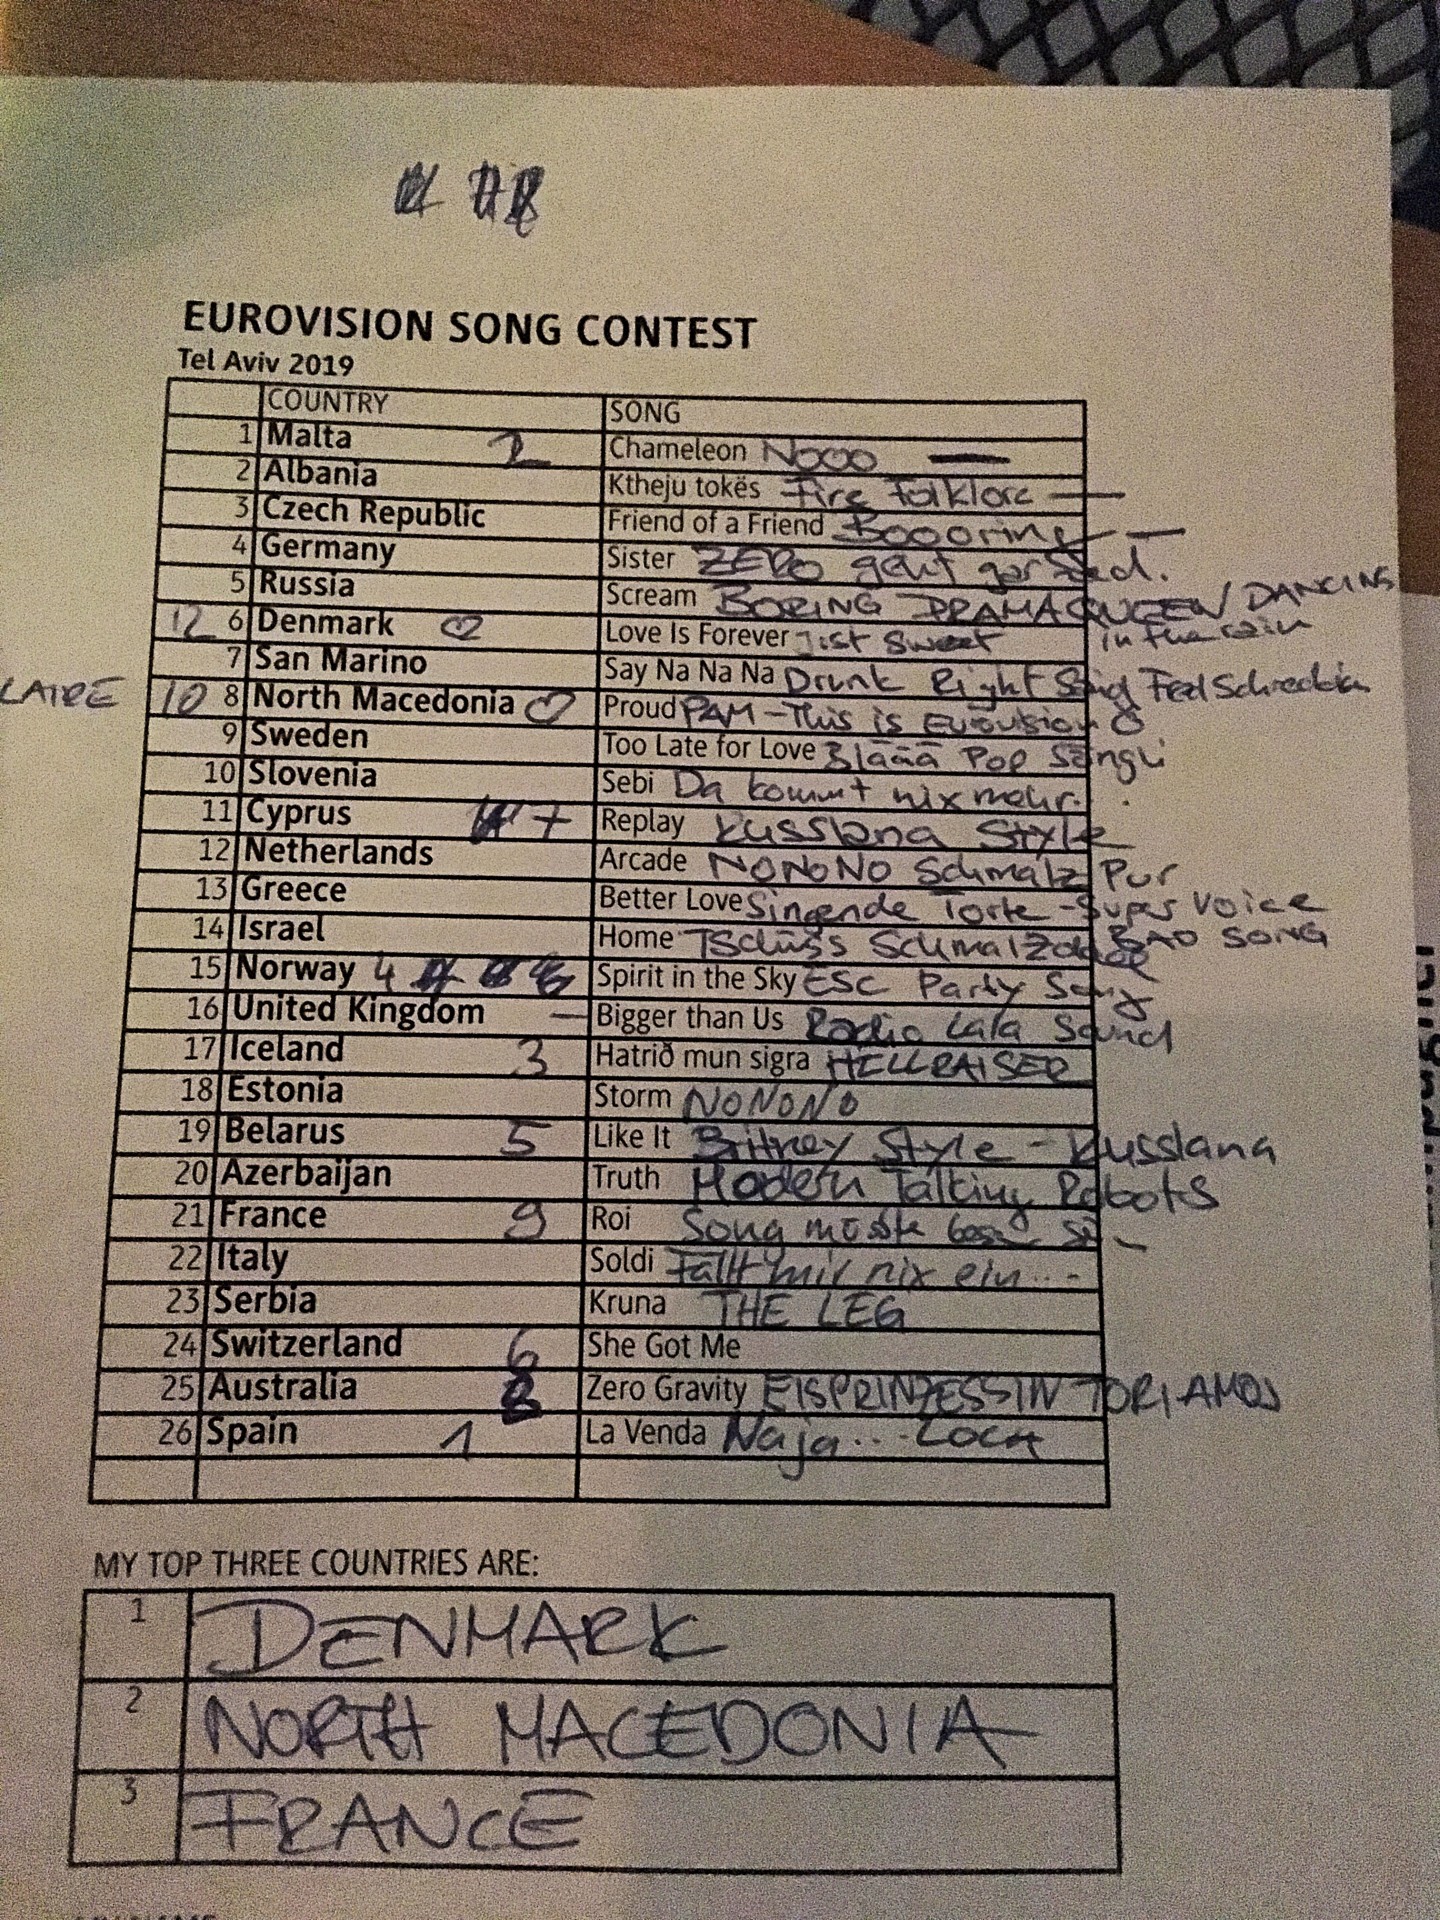 EUROVISION SONG CONTEST
Tel Aviv 2019
COUNTRY SONG
1 Malta 2 Chameleon NOOO —
2 Albania Ktheju tokës Fire Folklore —
3 Czech Republic Friend of a Friend Boooring —
4 Germany Sister ZERO geht gar
5 Russia Scream BORING DRAMAQUEEN DANCING
in the rain
12 6 Denmark ♡ Love Is Forever Just Sweet
7 San Marino Say Na Na Na Drunk Right Said Fred
LAIRE 10 8 North Macedonia ♡ Proud PAM - This is Eurovision
9 Sweden Too Late for Love Bläää Pop Songli
10 Slovenia Sebi Da kommt nix mehr..
11 Cyprus 7 Replay Russlana Style
12 Netherlands Arcade NONONO Schmalz Pur
13 Greece Better Love Singende Torte - Super Voice
BAD SONG
14 Israel Home TSCHÜSS
15 Norway 4 Spirit in the Sky ESC Party Song
16 United Kingdom — Bigger than Us Radio Lala Sound
17 Iceland 3 Hatrið mun sigra HELLRAISER
18 Estonia Storm NONONO
19 Belarus 5 Like It Britney Style - Russlana
20 Azerbaijan Truth Modern Talking Robots
21 France 9 Roi Song müsste
22 Italy Soldi Fällt mir nix ein...-
23 Serbia Kruna THE LEG
24 Switzerland 6 She Got Me
25 Australia 8 Zero Gravity EISPRINZESSIN TORI AMOS
26 Spain 1 La Venda Naja... LOCA
MY TOP THREE COUNTRIES ARE:
1 DENMARK
2 NORTH MACEDONIA
3 FRANCE